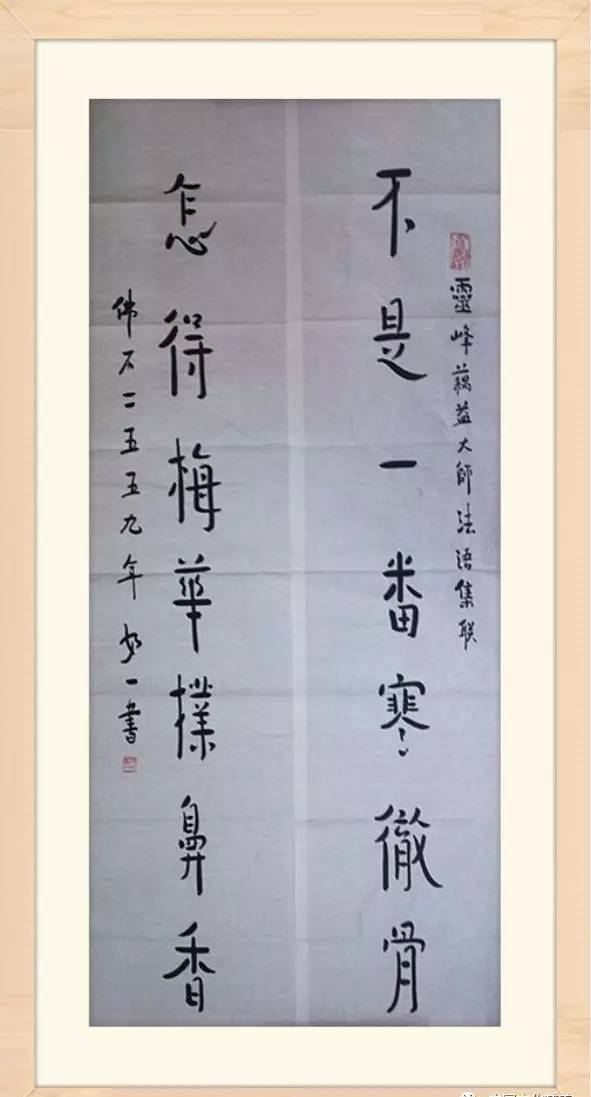 靈峰藕益大師法语集联
不是一番寒徹骨
怎得梅華撲鼻香
佛历二五五九年 如一書